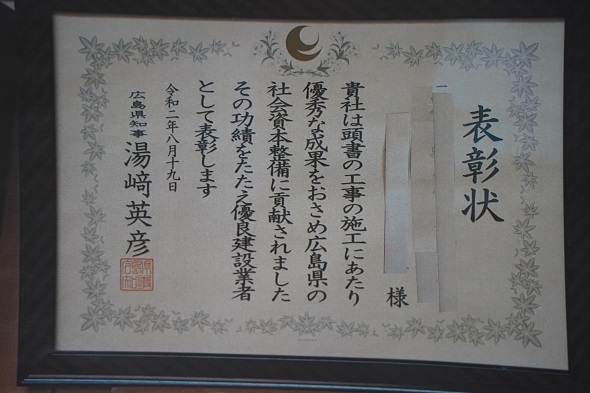 表彰状
様
貴社は頭書の工事の施工にあたり
優秀な成果をおさめ広島県の
社会資本整備に貢献されました
その功績をたたえ優良建設業者
として表彰します
令和二年八月十九日
広島県知事 湯﨑英彦